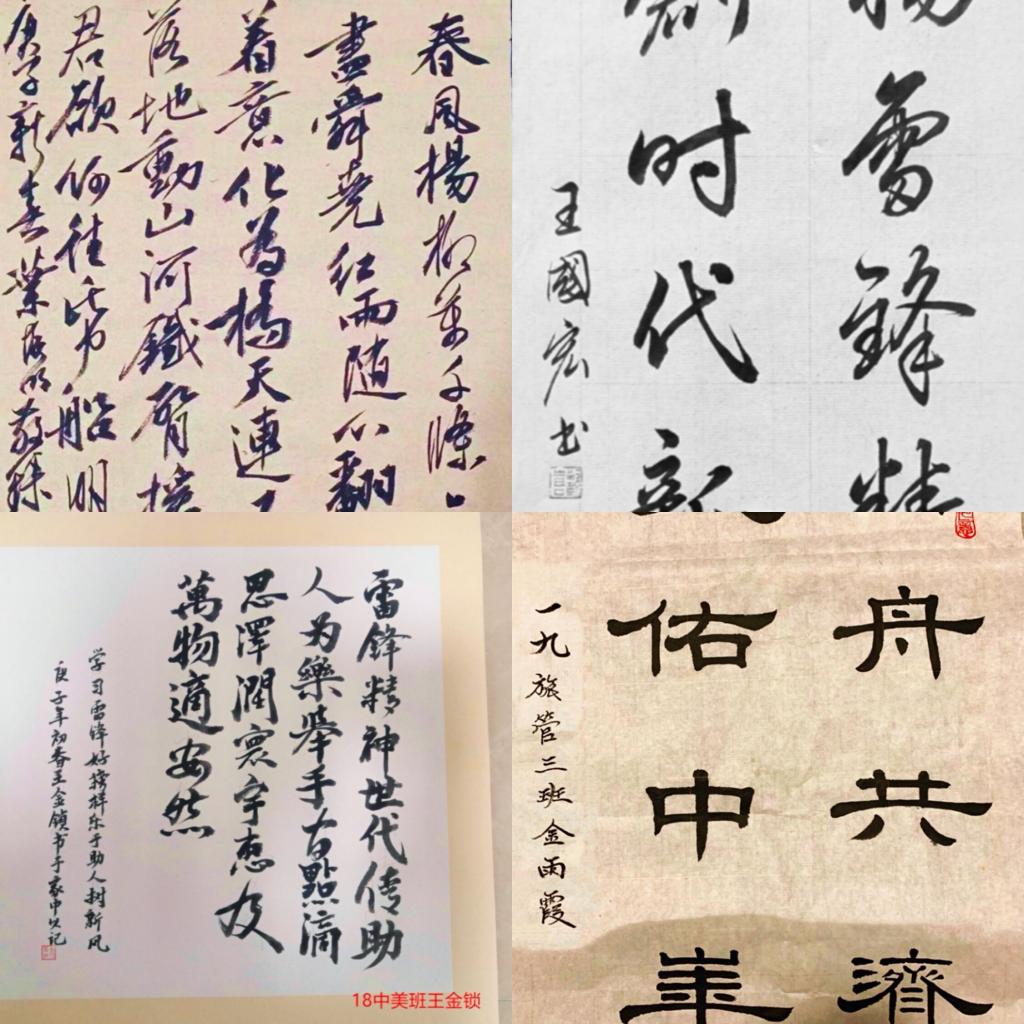 春風楊柳萬千條
盡舜堯红雨随心翻
着意化為橋天連
落地動山河鐵臂搖
君欲何往紙船明
庚子新春
雷鋒精
时代新
王國宏书
雷鋒精神世代传助
人为樂舉手古點滴
恩澤潤寰宇惠及
萬物適安然
学习雷锋好榜样乐于助人树新风
庚子年初春王金锁书于家中以记
18中美班王金锁
舟共濟
佑中華
一九旅管三班金雨霞